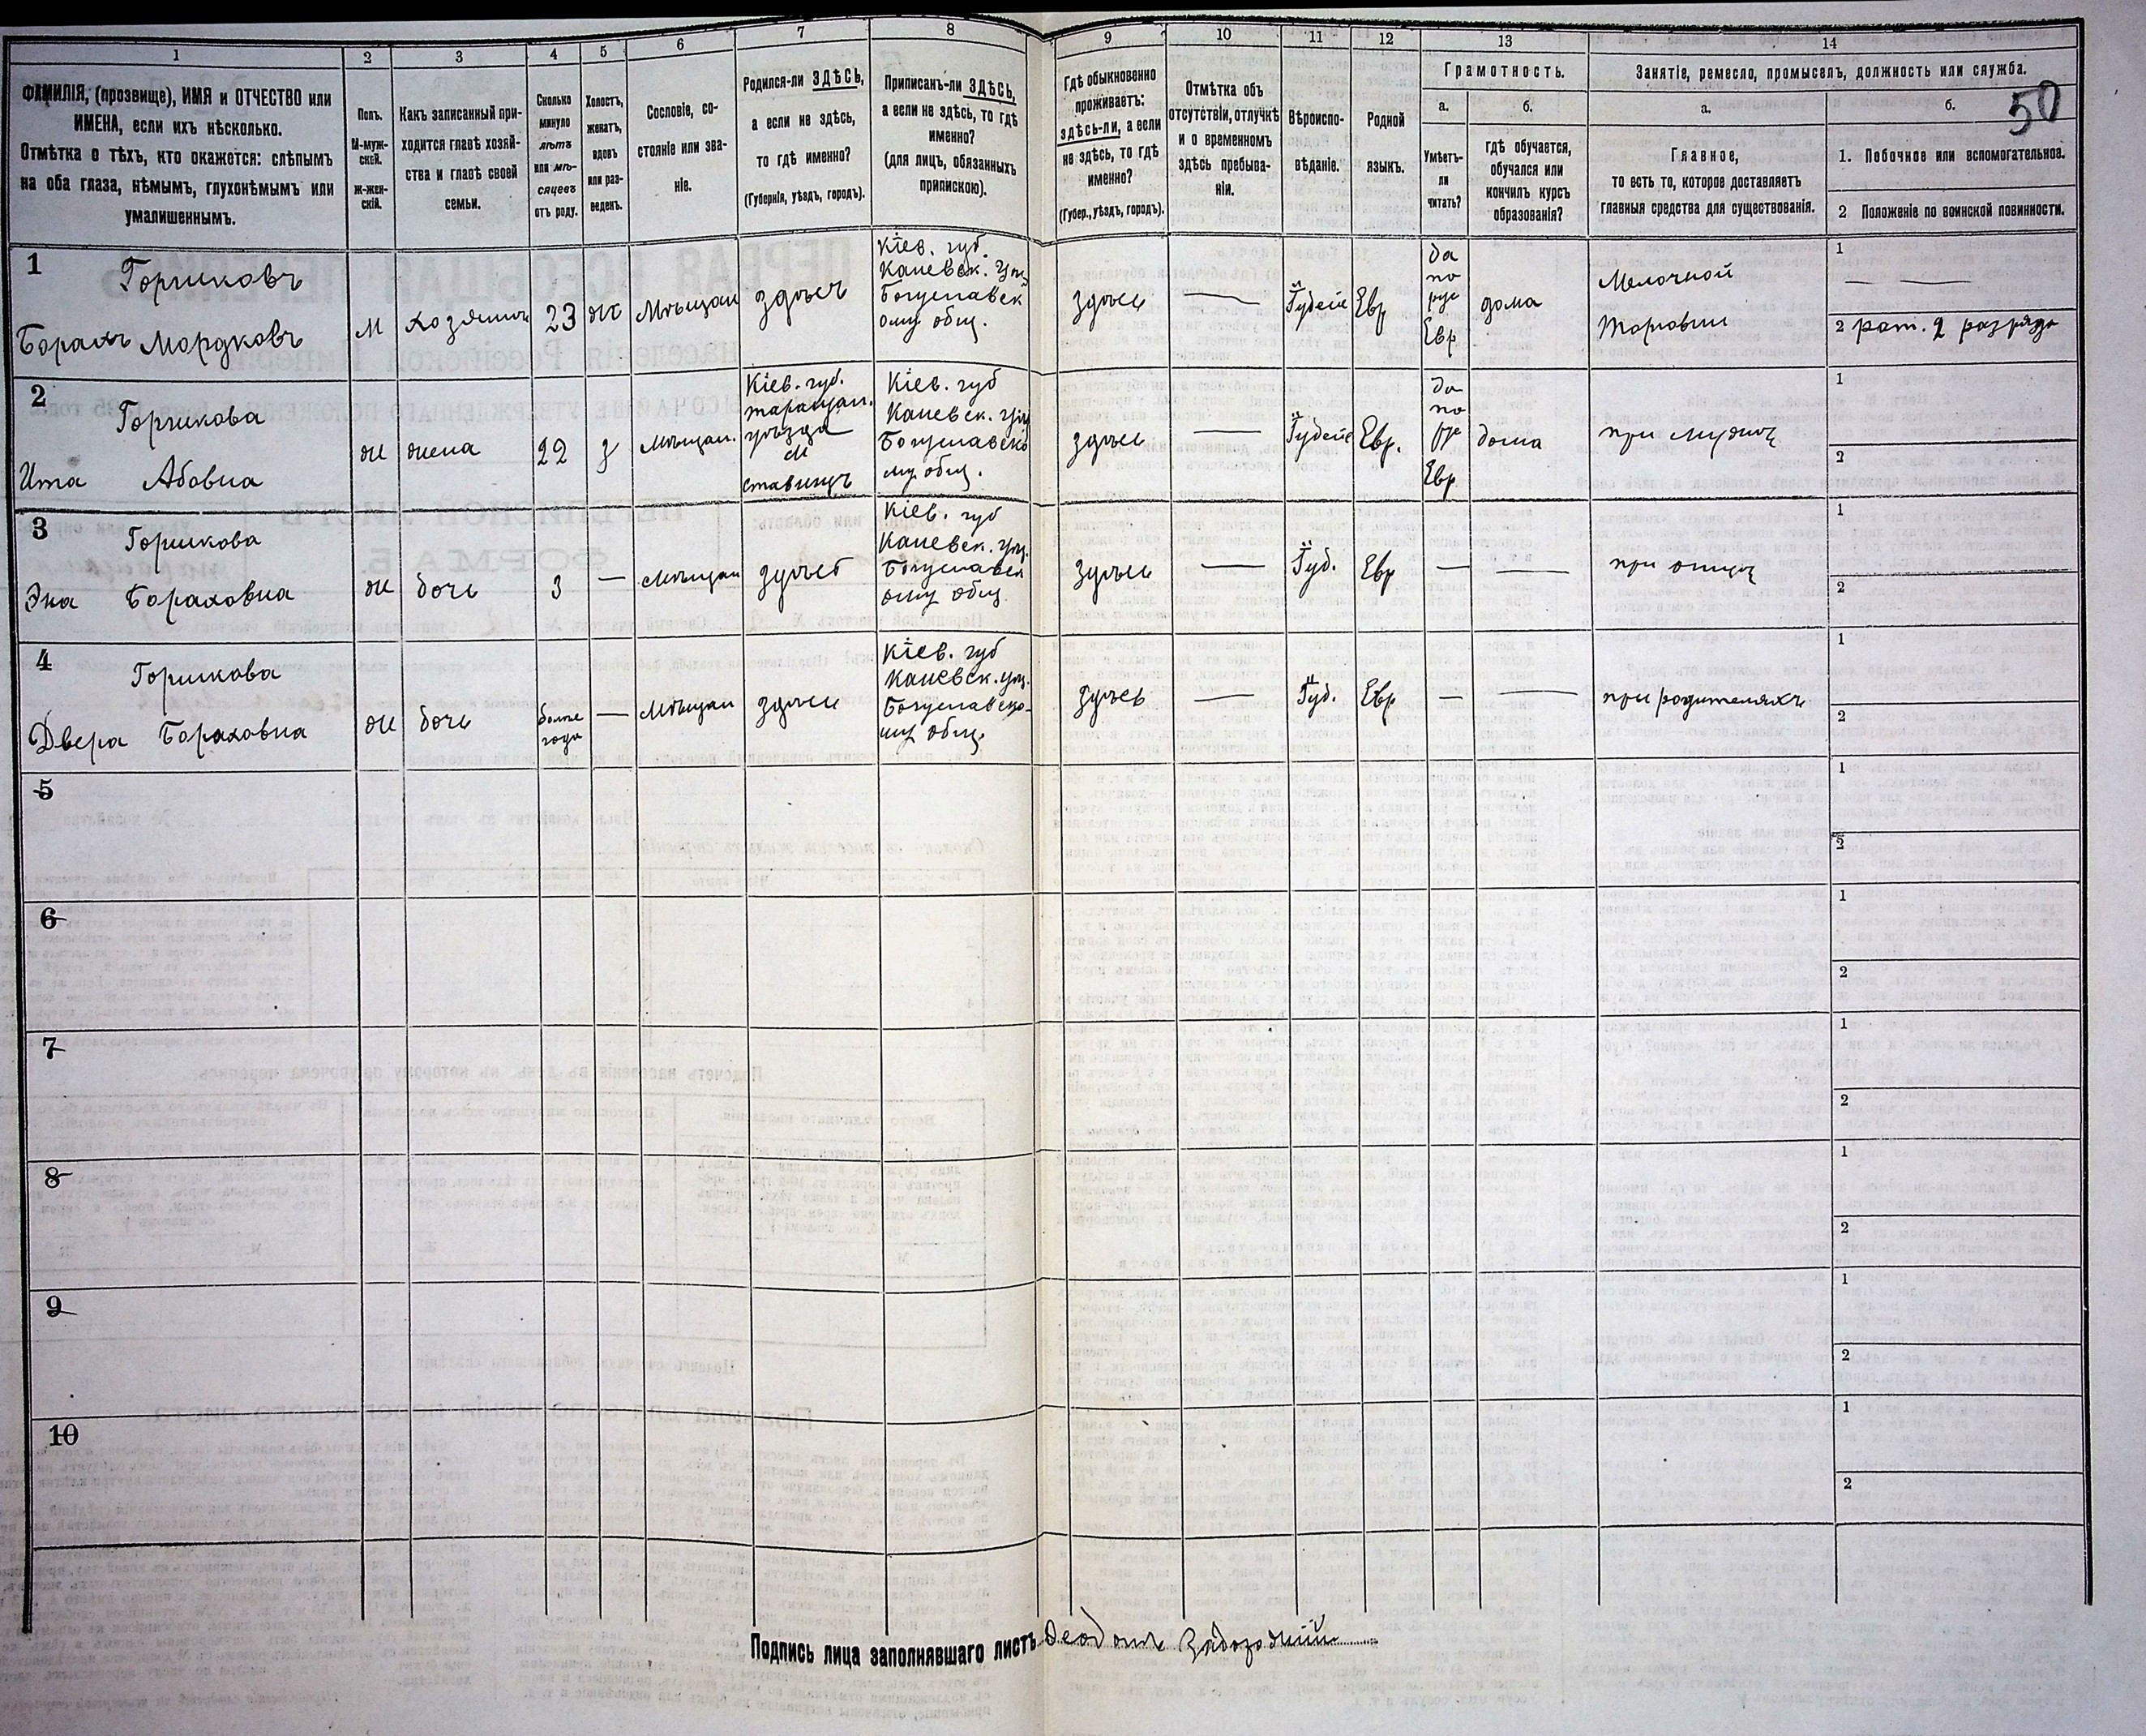 1
2
3
4
5
6
7
8
9
10
11
12
13
14
ФАМИЛІЯ, (прозвище), ИМЯ и ОТЧЕСТВО или
ИМЕНА, если ихъ нѣсколько.
Отмѣтка о тѣхъ, кто окажется: слѣпымъ
на оба глаза, нѣмымъ, глухонѣмымъ или
умалишеннымъ.
Полъ.
М-муж-
ской.
Ж-жен-
скій.
Какъ записанный при-
ходится главѣ хозяй-
ства и главѣ своей
семьи.
Сколько
минуло
лѣтъ
или мѣ-
сяцевъ
отъ роду.
Холостъ,
женатъ,
вдовъ
или раз-
веденъ.
Сословіе, со-
стояніе или зва-
ніе.
Родился-ли ЗДѢСЬ,
а если не здѣсь,
то гдѣ именно?
(Губернія, уѣздъ, городъ).
Приписанъ-ли ЗДѢСЬ,
а если не здѣсь, то гдѣ
именно?
(для лицъ, обязанныхъ
припискою).
Гдѣ обыкновенно
проживаетъ:
здѣсь-ли, а если
не здѣсь, то гдѣ
именно?
(Губер., уѣздъ, городъ).
Отмѣтка объ
отсутствіи, отлучкѣ
и о временномъ
здѣсь пребыва-
ніи.
Вѣроиспо-
вѣданіе.
Родной
языкъ.
Грамотность.
а.
б.
Умѣетъ-
ли
читать?
гдѣ обучается,
обучался или
кончилъ курсъ
образованія?
Занятіе, ремесло, промыселъ, должность или служба.
а.
б.
50
Главное,
то есть то, которое доставляетъ
главныя средства для существованія.
1. Побочное или вспомогательное.
2 Положеніе по воинской повинности.
1
Горшковъ
Борахъ Мордковъ
м
хозяинъ
23
ж
Мѣщан
здѣсь
Кіев. губ.
Каневск. уѣз
Богуславск
ому общ.
здѣсь
—
Іудей
Евр
да
по
рус
Евр
дома
Мелочной
Торговец
1
— —
2 рат. 2 разряда
2
Горшкова
Ита Абовна
ж
жена
22
з
Мѣщан.
Кіев. губ.
таращан.
уѣзда
м
ставищъ
Кіев. губ
Каневск. уѣз
Богуславско
му общ.
здѣсь
—
Іудей
Евр.
да
по
рус
Евр
дома
при мужѣ
1
2
3
Горшкова
Эка Бораховна
ж
дочь
3
—
Мѣщан
здѣсь
Кіев. губ
Каневск. уѣз.
Богуславск
ому общ
здѣсь
—
Іуд.
Евр
—
—
при отцѣ
1
2
4
Горшкова
Двера Бораховна
ж
дочь
более
года
—
Мѣщан
здѣсь
Кіев. губ
Каневск. уѣз.
Богуславско-
му общ.
здѣсь
—
Іуд.
Евр
—
—
при родителяхъ
1
2
5
1
2
6
1
2
7
1
2
8
1
2
9
1
2
10
1
2
Подпись лица заполнявшаго листъ Феодотъ Задорожній